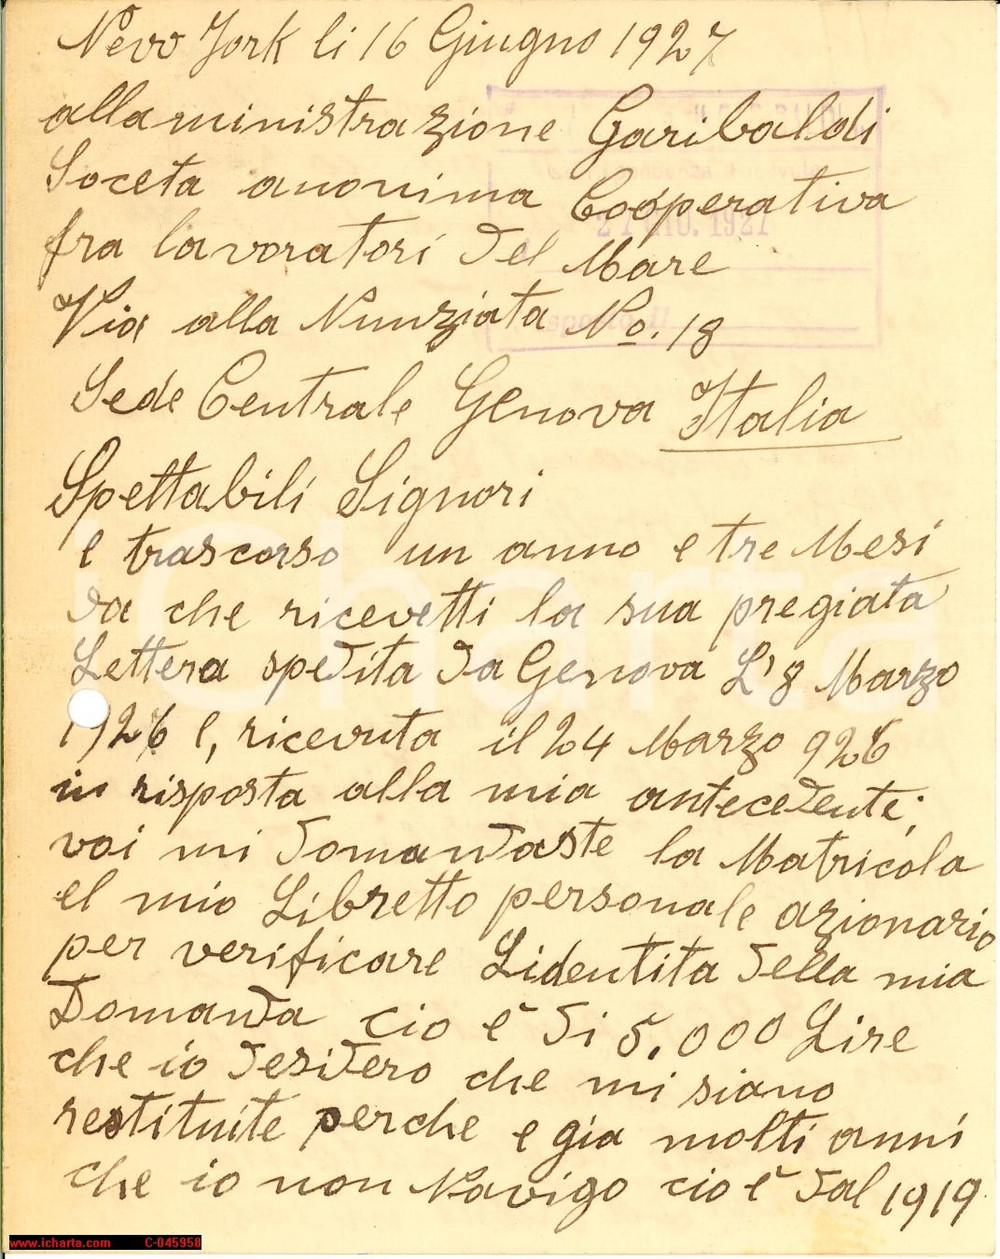 Nevv York li 16 Giugno 1927
allaministrazione Garibaldi
Soceta anonima Cooperativa
fra lavoratori del Mare
Via alla Nunziata No. 18
Sede Centrale Genova Italia
Spettabili Signori
e trascorso un anno e tre Mesi
da che ricevetti la sua pregiata
Lettera spedita da Genova L'8 Marzo
1926 e, ricevuta il 24 Marzo 926
in risposta alla mia antecedente;
voi mi domandaste la Matricola
el mio Libretto personale azionario
per verificare Lidentita della mia
Domanda cio è di 5.000 Lire
che io desidero che mi siano
restituite perche e gia molti anni
che io non Navigo cio è dal 1919
iCharta
www.icharta.com C-045958